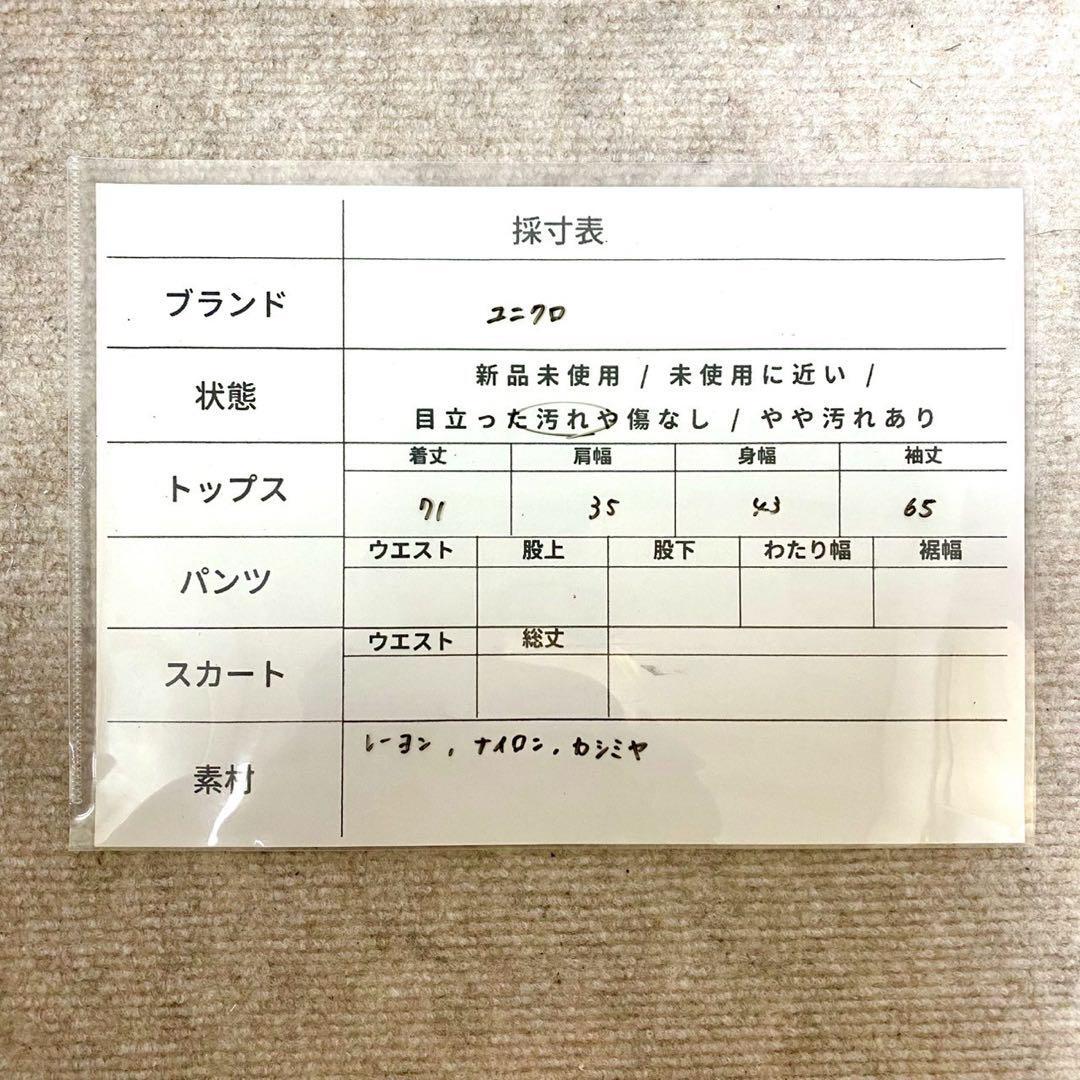 採寸表
ブランド
ユニクロ
状態
新品未使用 / 未使用に近い /
目立った汚れや傷なし / やや汚れあり
トップス
着丈 肩幅 身幅 袖丈
71 35 43 65
パンツ
ウエスト 股上 股下 わたり幅 裾幅
スカート
ウエスト 総丈
素材
レーヨン, ナイロン, カシミヤ